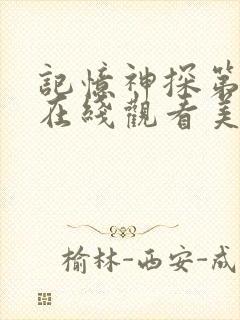 記憶神探第
在綫觀看美
榆林-西安-成